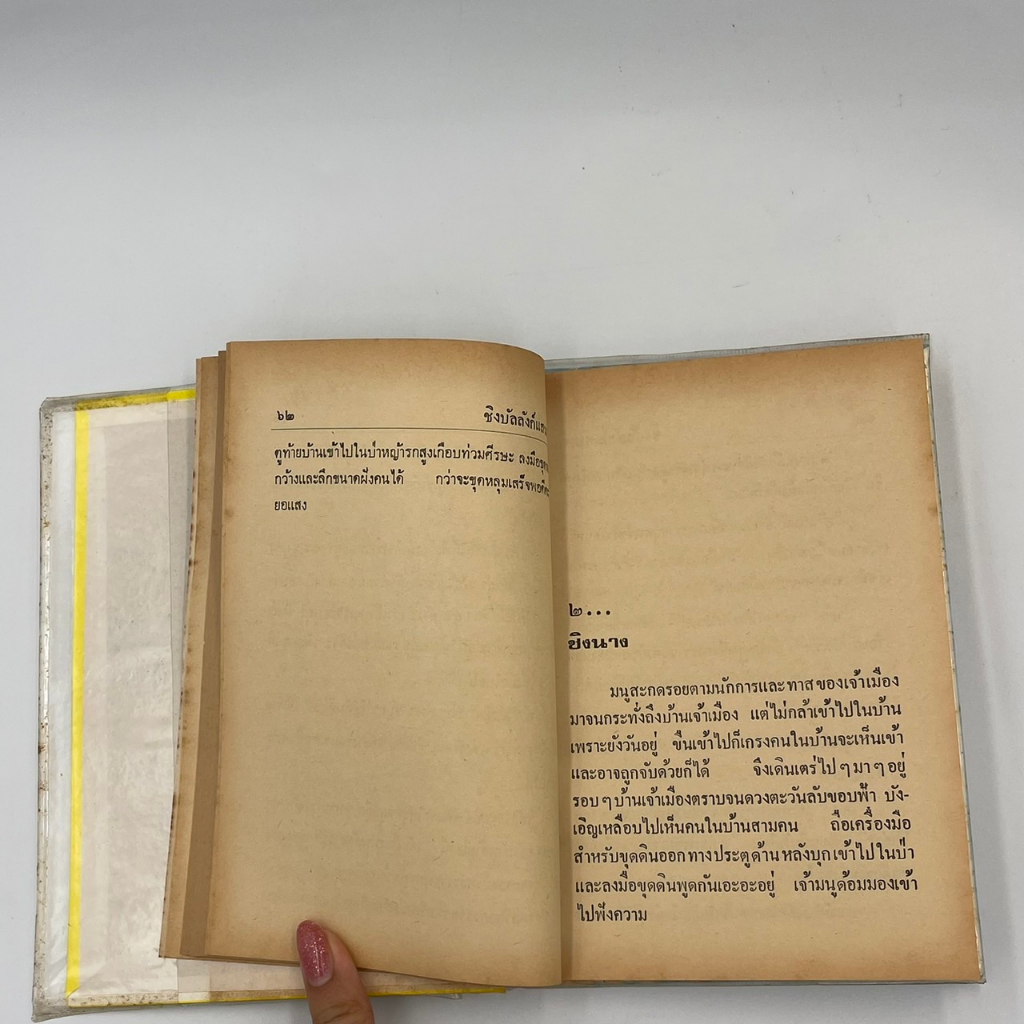 ๖๒
ชิงบัลลังก์
ดูท้ายบ้านเข้าไปในป่าหญ้ารกสูงเกือบท่วมศีรษะ ลงมือขุด
กว้างและลึกขนาดฝังคนได้ กว่าจะขุดหลุมเสร็จพอดี
ยอแสง
๒...
ชิงนาง
มนูสะกดรอยตามนักการและทาสของเจ้าเมือง
มาจนกระทั่งถึงบ้านเจ้าเมือง แต่ไม่กล้าเข้าไปในบ้าน
เพราะยังวันอยู่ ขืนเข้าไปก็เกรงคนในบ้านจะเห็นเข้า
และอาจถูกจับด้วยก็ได้ จึงเดินเตร่ไป ๆ มา ๆ อยู่
รอบ ๆ บ้านเจ้าเมืองตราบจนดวงตะวันลับขอบฟ้า บัง-
เอิญเหลือบไปเห็นคนในบ้านสามคน ถือเครื่องมือ
สำหรับขุดดินออกทางประตูด้านหลังบุกเข้าไปในป่า
และลงมือขุดดินพูดกันเอะอะอยู่ เจ้ามนูด้อมมองเข้า
ไปฟังความ